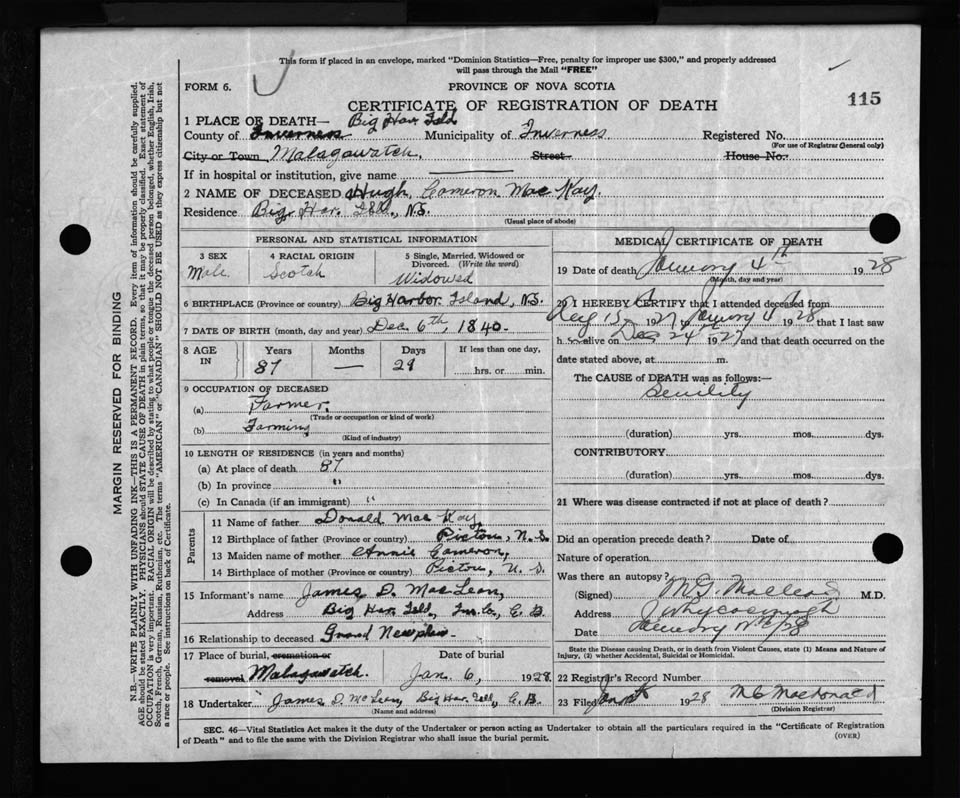 This form if placed in an envelope, marked "Dominion Statistics—Free, penalty for improper use $300," and properly addressed
will pass through the Mail "FREE"
FORM 6.
PROVINCE OF NOVA SCOTIA
CERTIFICATE OF REGISTRATION OF DEATH
115
1 PLACE OF DEATH— Big Har. Isld
County of Inverness Municipality of Inverness Registered No.
(For use of Registrar General only)
City or Town Malagawatch, Street House No.
If in hospital or institution, give name
2 NAME OF DECEASED Hugh Cameron Mac Kay.
Residence Big Har. Isld., N.S.
(Usual place of abode)
PERSONAL AND STATISTICAL INFORMATION
3 SEX 4 RACIAL ORIGIN 5 Single, Married, Widowed or
Divorced. (Write the word)
Male Scotch Widowed
6 BIRTHPLACE (Province or country) Big Harbor Island, N.S.
7 DATE OF BIRTH (month, day and year) Dec. 6th, 1840.
8 AGE IN Years Months Days If less than one day,
87 — 29 hrs. or min.
9 OCCUPATION OF DECEASED
(a) Farmer.
(Trade or occupation or kind of work)
(b) Farming
(Kind of industry)
10 LENGTH OF RESIDENCE (in years and months)
(a) At place of death 87
(b) In province "
(c) In Canada (if an immigrant) "
Parents
11 Name of father Donald Mac Kay
12 Birthplace of father (Province or country) Pictou, N.S.
13 Maiden name of mother Annie Cameron,
14 Birthplace of mother (Province or country) Pictou, N.S.
15 Informant's name James D. MacLean,
Address Big Har. Isld, Inv. Co., C.B.
16 Relationship to deceased Grand Newphew
17 Place of burial, cremation or Date of burial
removal Malagawatch. Jan. 6, 1928.
18 Undertaker James D. McLean, Big Har. Isld, C.B.
(Name and address)
MEDICAL CERTIFICATE OF DEATH
19 Date of death January 4th 1928
(Month, day and year)
20 I HEREBY CERTIFY that I attended deceased from
1927 January 4 1928 that I last saw
h alive on Dec 24 1927 and that death occurred on the
date stated above, at m.
The CAUSE of DEATH was as follows:—
Senility
(duration) yrs. mos. dys.
CONTRIBUTORY
(duration) yrs. mos. dys.
21 Where was disease contracted if not at place of death?
Did an operation precede death? Date of
Nature of operation
Was there an autopsy?
(Signed) M.G. MacLeod M.D.
Address Whycocomagh
Date January /28
State the Disease causing Death, or in death from Violent Causes, state (1) Means and Nature of
Injury, (2) whether Accidental, Suicidal or Homicidal.
22 Registrar's Record Number
23 Filed 1928 MacDonald
(Division Registrar)
SEC. 46—Vital Statistics Act makes it the duty of the Undertaker or person acting as Undertaker to obtain all the particulars required in the "Certificate of Registration
of Death" and to file the same with the Division Registrar who shall issue the burial permit.
(OVER)
MARGIN RESERVED FOR BINDING
N.B.—WRITE PLAINLY WITH UNFADING INK—THIS IS A PERMANENT RECORD. Every item of information should be carefully supplied.
AGE should be stated EXACTLY. PHYSICIANS should STATE CAUSE OF DEATH in plain terms, so that it may be properly classified. Exact statement of
OCCUPATION is very important. RACIAL ORIGIN will be described by stating to what people or tongue the deceased person belonged, whether English, Irish,
Scotch, French, German, Russian, Ruthenian, etc. The terms "AMERICAN" or "CANADIAN" SHOULD NOT BE USED as they express citizenship but not
a race or people. See instructions on back of Certificate.